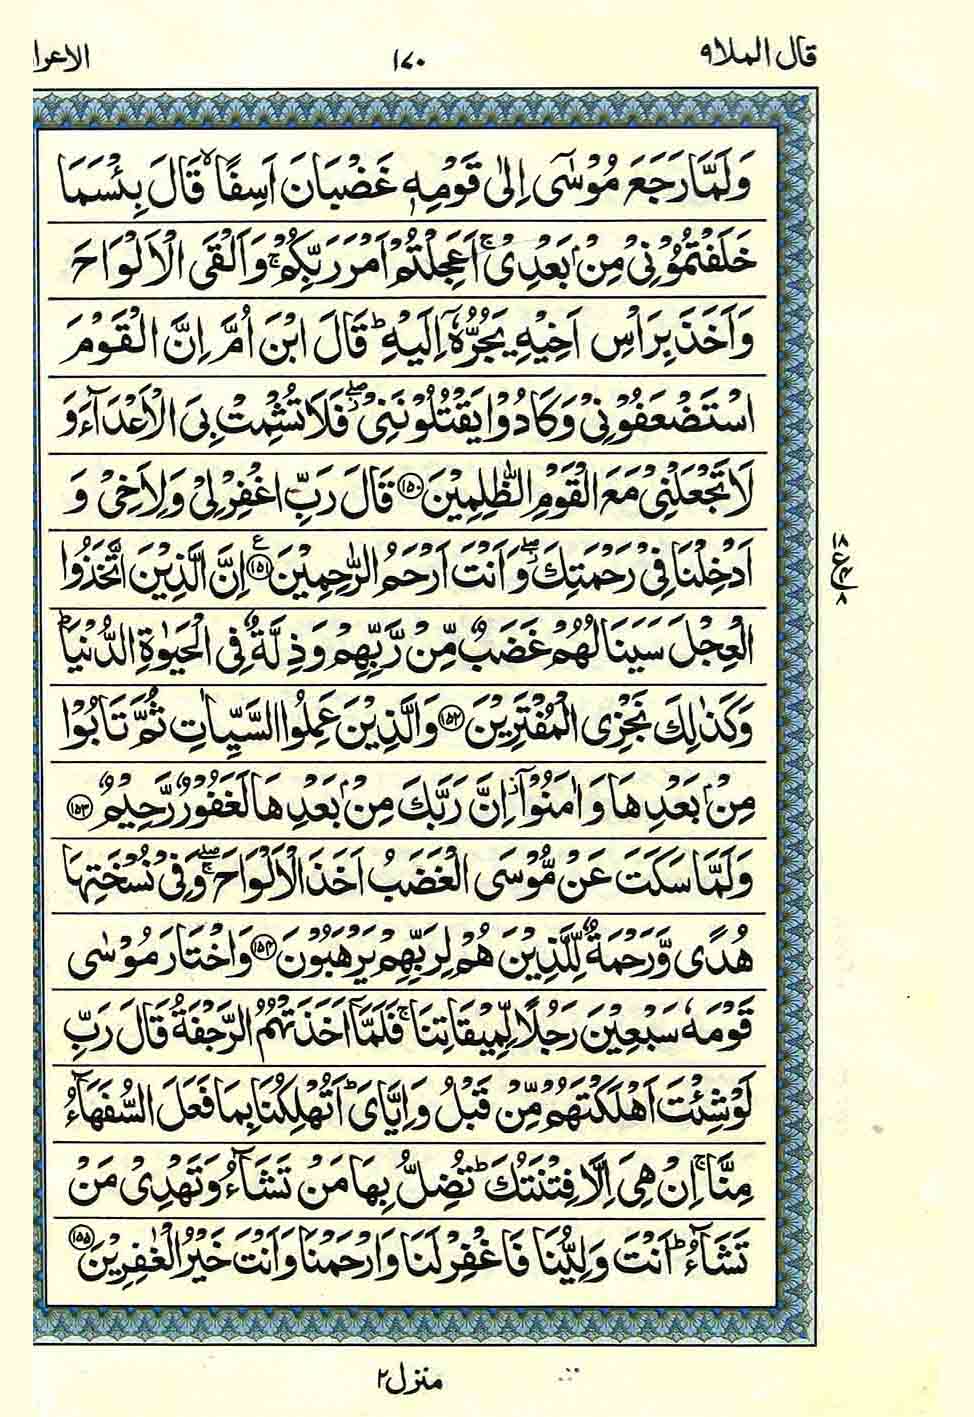 قال الملا ٩ ١٧٠ الاعرا
وَلَمَّا رَجَعَ مُوْسٰۤى اِلٰى قَوْمِهٖ غَضْبَانَ اَسِفًا ۙ قَالَ بِئْسَمَا
خَلَفْتُمُوْنِیْ مِنْۢ بَعْدِیْ ۚ اَعَجِلْتُمْ اَمْرَ رَبِّكُمْ ۚ وَاَلْقَى الْاَلْوَاحَ
وَاَخَذَ بِرَاْسِ اَخِیْهِ یَجُرُّهٗۤ اِلَیْهِ ؕ قَالَ ابْنَ اُمَّ اِنَّ الْقَوْمَ
اسْتَضْعَفُوْنِیْ وَكَادُوْا یَقْتُلُوْنَنِیْ ۖ فَلَا تُشْمِتْ بِیَ الْاَعْدَآءَ وَ
لَا تَجْعَلْنِیْ مَعَ الْقَوْمِ الظّٰلِمِیْنَ ﴿۱۵۰﴾ قَالَ رَبِّ اغْفِرْ لِیْ وَلِاَخِیْ وَ
اَدْخِلْنَا فِیْ رَحْمَتِكَ ۖ وَاَنْتَ اَرْحَمُ الرّٰحِمِیْنَ ﴿۱۵۱﴾ ع اِنَّ الَّذِیْنَ اتَّخَذُوا
الْعِجْلَ سَیَنَالُهُمْ غَضَبٌ مِّنْ رَّبِّهِمْ وَذِلَّةٌ فِی الْحَیٰوةِ الدُّنْیَا ؕ
وَكَذٰلِكَ نَجْزِی الْمُفْتَرِیْنَ ﴿۱۵۲﴾ وَالَّذِیْنَ عَمِلُوا السَّیِّاٰتِ ثُمَّ تَابُوْا
مِنْۢ بَعْدِهَا وَاٰمَنُوْۤا ؗ اِنَّ رَبَّكَ مِنْۢ بَعْدِهَا لَغَفُوْرٌ رَّحِیْمٌ ﴿۱۵۳﴾
وَلَمَّا سَكَتَ عَنْ مُّوْسَى الْغَضَبُ اَخَذَ الْاَلْوَاحَ ۖۚ وَفِیْ نُسْخَتِهَا
هُدًى وَّرَحْمَةٌ لِّلَّذِیْنَ هُمْ لِرَبِّهِمْ یَرْهَبُوْنَ ﴿۱۵۴﴾ وَاخْتَارَ مُوْسٰى
قَوْمَهٗ سَبْعِیْنَ رَجُلًا لِّمِیْقَاتِنَا ۚ فَلَمَّاۤ اَخَذَتْهُمُ الرَّجْفَةُ قَالَ رَبِّ
لَوْ شِئْتَ اَهْلَكْتَهُمْ مِّنْ قَبْلُ وَاِیَّایَ ؕ اَتُهْلِكُنَا بِمَا فَعَلَ السُّفَهَآءُ
مِنَّا ۚ اِنْ هِیَ اِلَّا فِتْنَتُكَ ؕ تُضِلُّ بِهَا مَنْ تَشَآءُ وَتَهْدِیْ مَنْ
تَشَآءُ ؕ اَنْتَ وَلِیُّنَا فَاغْفِرْ لَنَا وَارْحَمْنَا وَاَنْتَ خَیْرُ الْغٰفِرِیْنَ ﴿۱۵۵﴾
١٨
ع
٨
منزل ۲